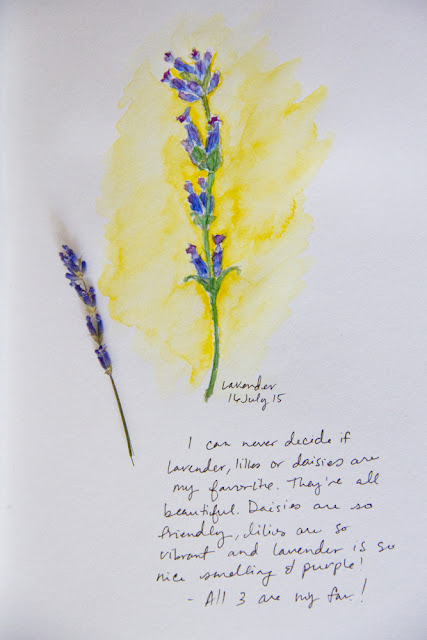 Lavender
16 July 15
I can never decide if
lavender, lilies or daisies are
my favorite. They're all
beautiful. Daisies are so
friendly, lilies are so
vibrant and lavender is so
nice smelling & purple!
- All 3 are my fav!